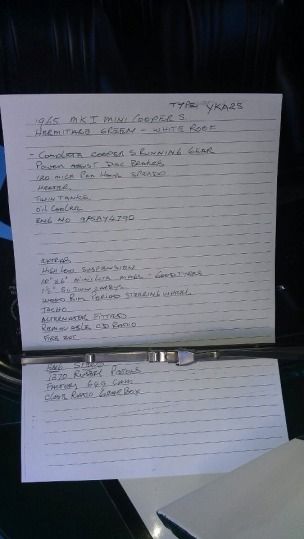 TYPE YKA2S
1965 MK I MINI COOPER S
HERMITAGE GREEN - WHITE ROOF
- COMPLETE COOPER S RUNNING GEAR
POWER ASSIST DISC BRAKES
120 MILES PER HOUR SPEEDO
HEATER
TWIN TANKS
OIL COOLER
ENG NO
EXTRAS
HIGH LOW SUSPENSION
10" x 6" MINILITE MAGS - GOOD TYRES
1½" SU TWIN CARBYS
WOOD RIM PERIOD STEERING WHEEL
TACHO
ALTERNATOR FITTED
REMOVABLE CD RADIO
FIRE EXT
1270 PISTONS
FACTORY 649 CAM
CLOSE RATIO GEARBOX